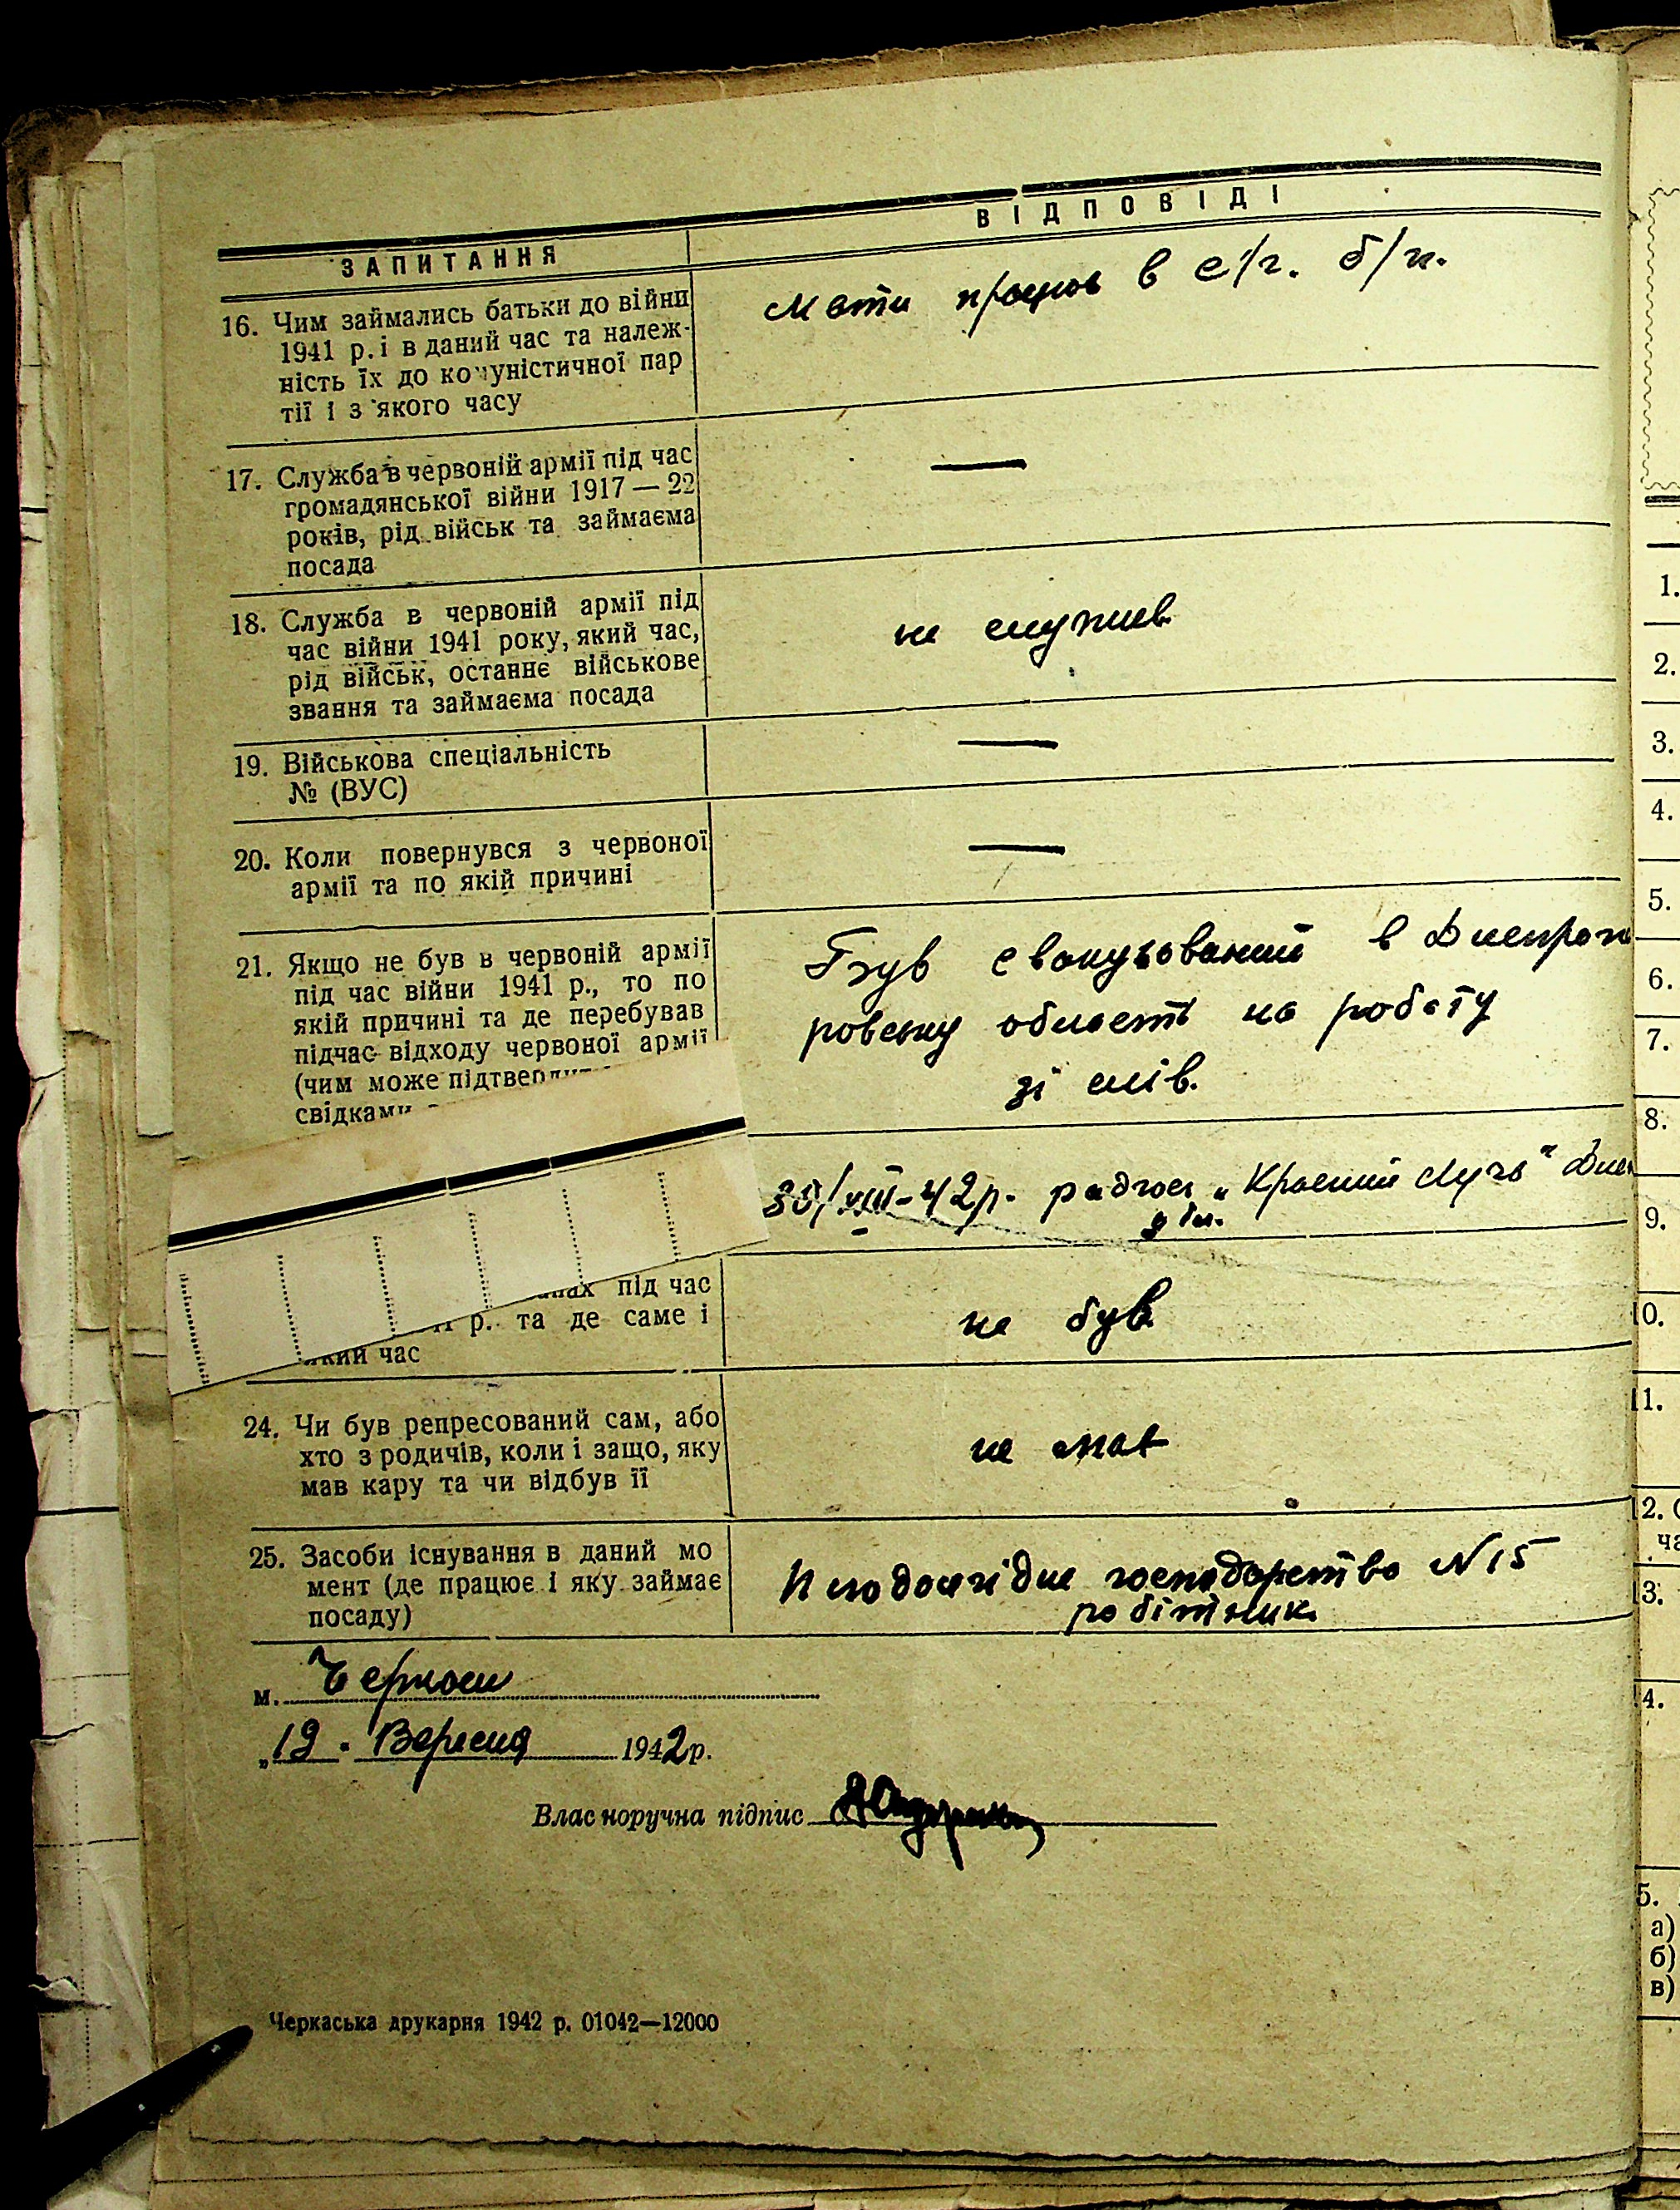 ЗАПИТАННЯ
ВІДПОВІДІ
16. Чим займались батьки до війни
1941 р. і в даний час та належ-
ність їх до комуністичної пар
тії і з якого часу
Мати працює в с/г. б/п.
17. Служба в червоній армії під час
громадянської війни 1917 — 22
років, рід військ та займаєма
посада
—
18. Служба в червоній армії під
час війни 1941 року, який час,
рід військ, останнє військове
звання та займаєма посада
не служив.
19. Військова спеціальність
№ (ВУС)
—
20. Коли повернувся з червоної
армії та по якій причині
—
21. Якщо не був в червоній армії
під час війни 1941 р., то по
якій причині та де перебував
підчас відходу червоної армії
(чим може підтверди
свідками
Був евакуьований в Днепроп
ровську область на роботу
зі
30/VIII-42р. радгосп „Красний Лучь"
під час
р. та де саме і
який час
не був
24. Чи був репресований сам, або
хто з родичів, коли і защо, яку
мав кару та чи відбув її
не мав
25. Засоби існування в даний мо
мент (де працює і яку займає
посаду)
господарство N 15
робітник.
м. Черкаси
„19" Вересня 1942р.
Власноручна підпис
Черкаська друкарня 1942 р. 01042—12000
1.
2.
3.
4.
5.
6.
7.
8.
9.
10.
11.
12. С
ча
13.
14.
15.
а)
б)
в)